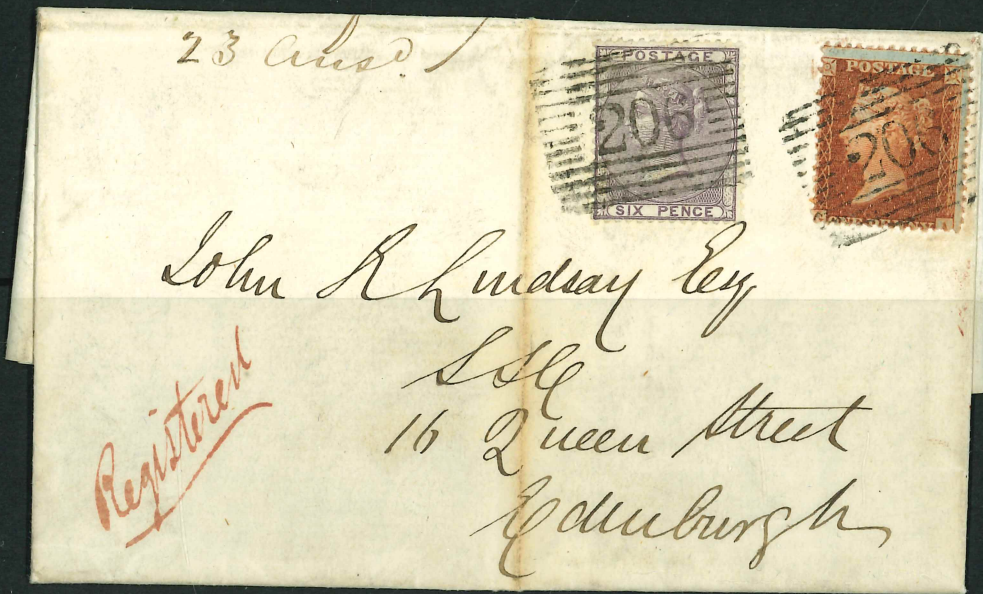 23 Ansd
POSTAGE
206
SIX PENCE
POSTAGE
206
John R Lindsay Esq
SSC
16 Queen Street
Edinburgh
Registered